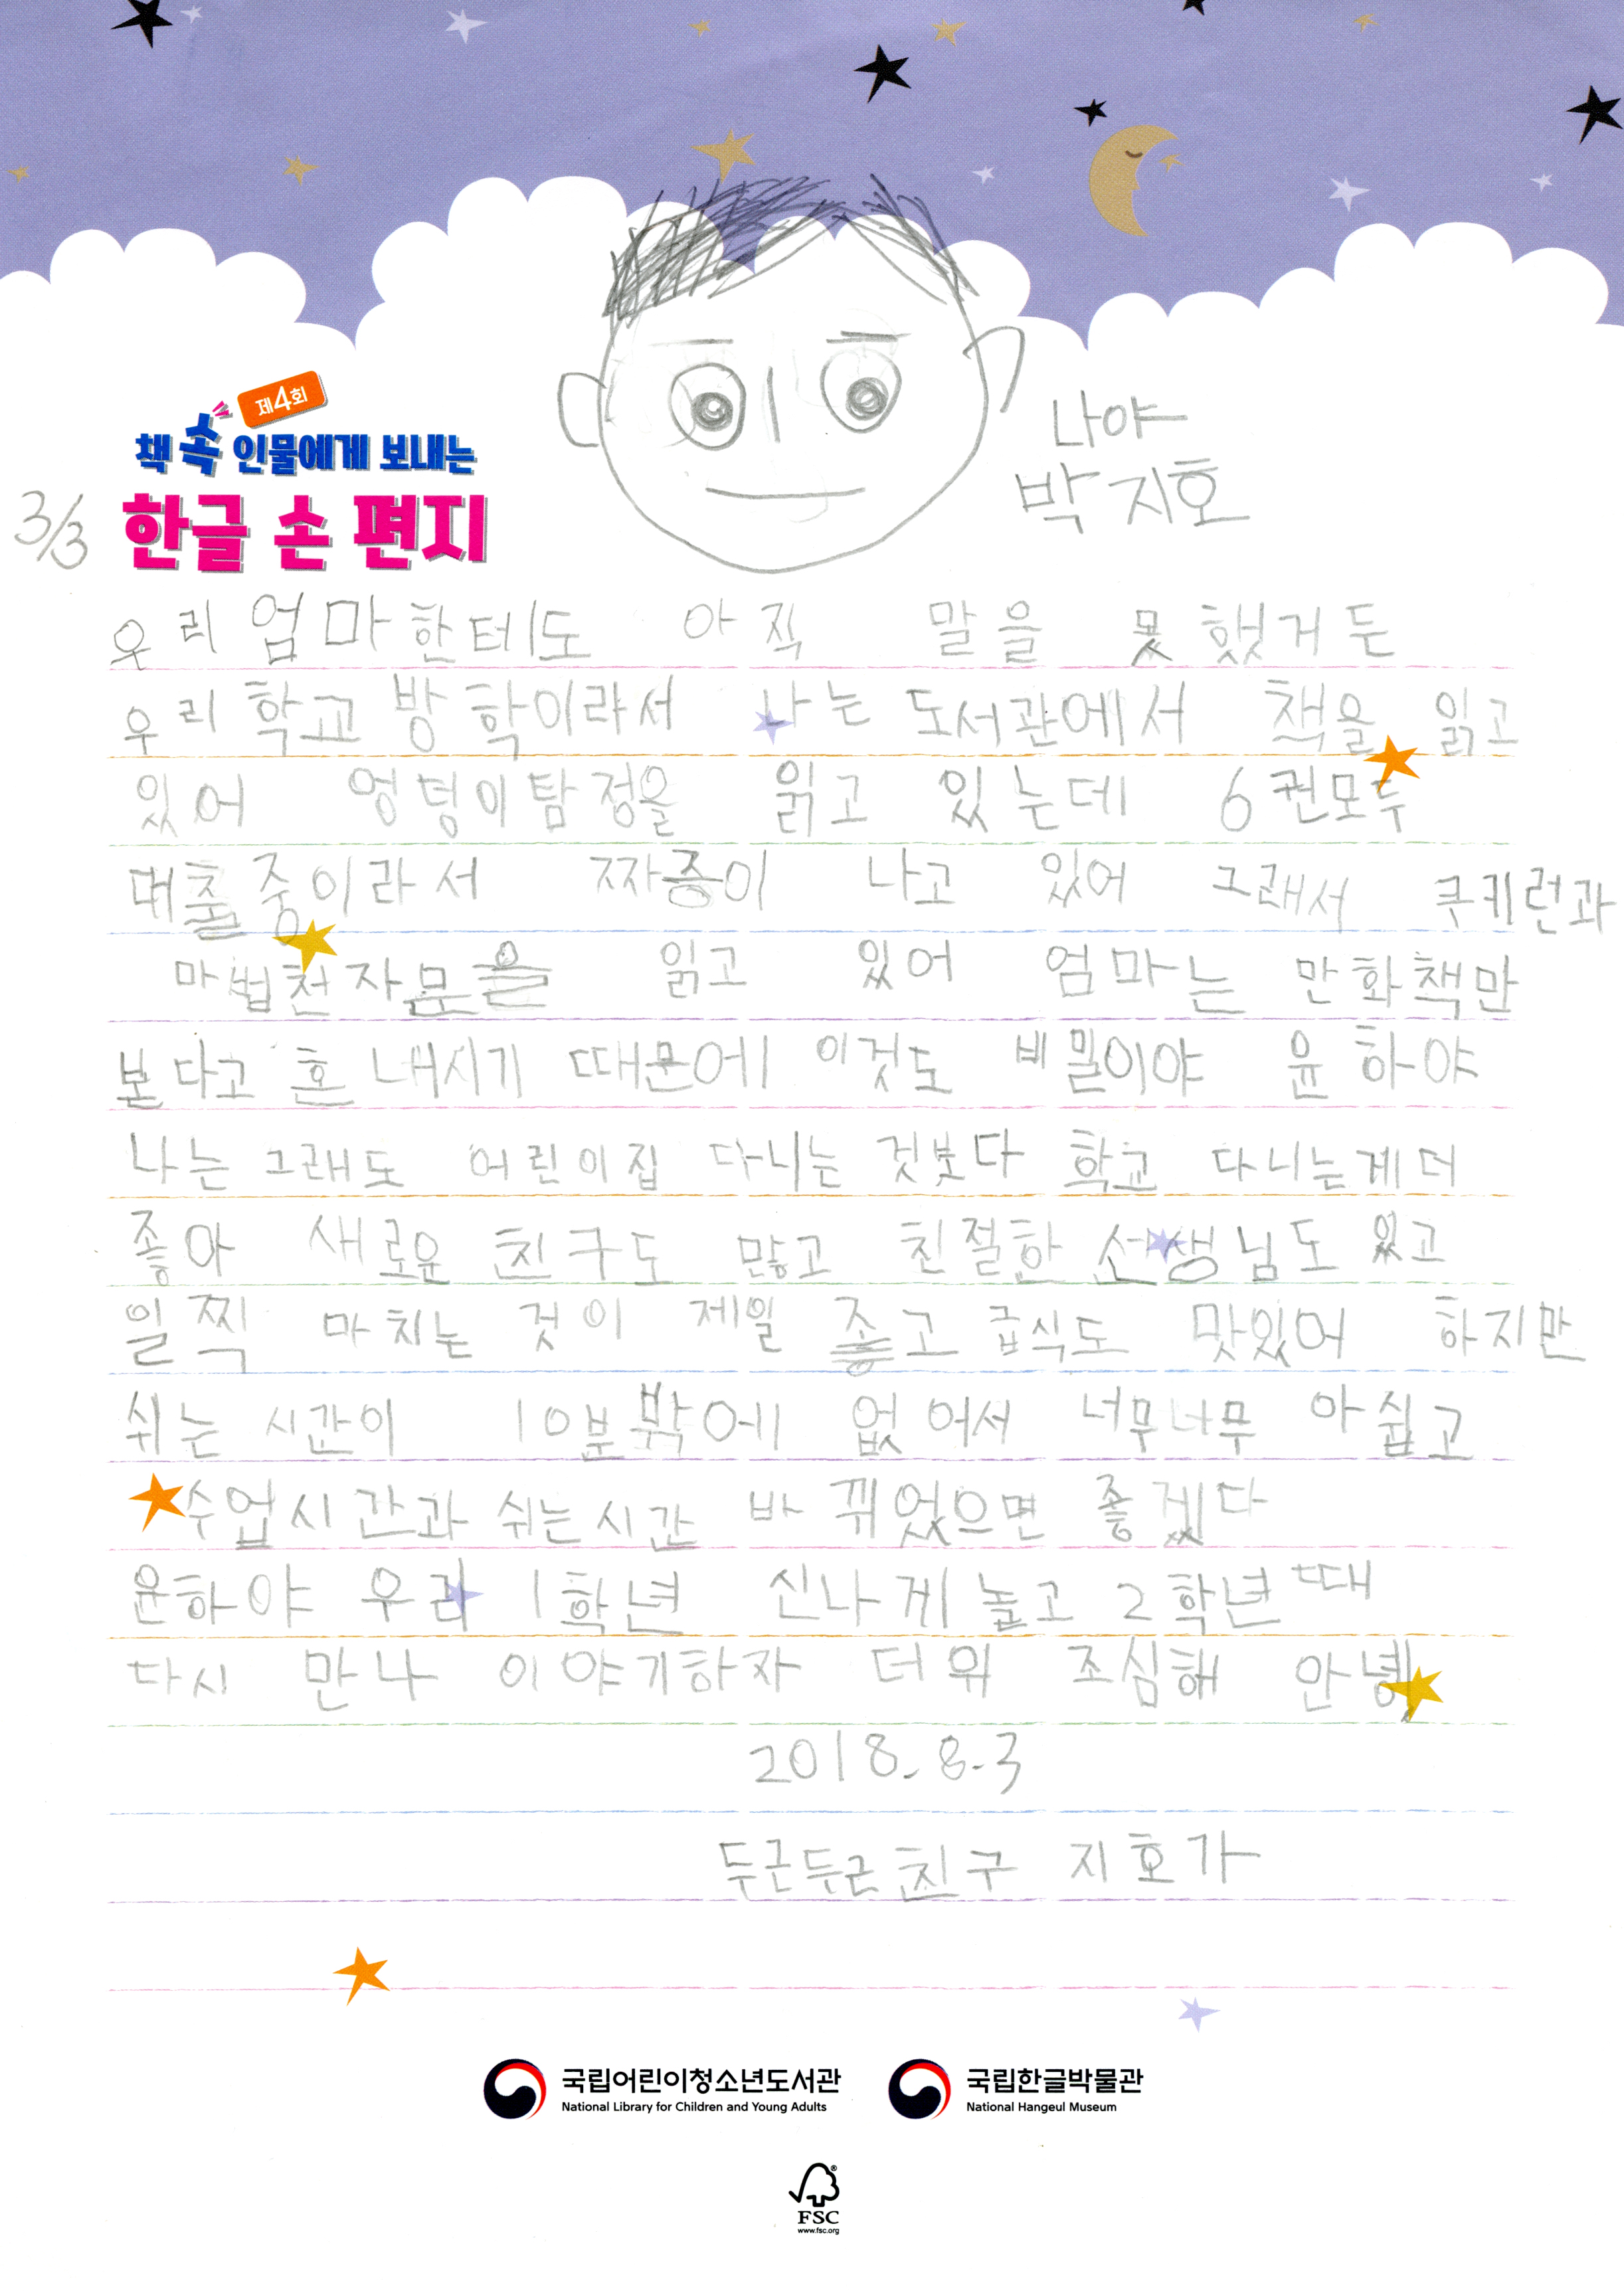 제4회
책 속 인물에게 보내는
한글 손 편지
3/3
나야
박지호
우리 엄마한테도 아직 말을 못했거든
우리학교 방학이라서 나는 도서관에서 책을 읽고
있어 엉텅이탐정을 읽고 있는데 6권모두
대출중이라서 짜증이 나고 있어 그래서 쿠키런과
마법천자문을 읽고 있어 엄마는 만화책만
본다고 혼내시기 때문에 이것도 비밀이야 윤하야
나는 그래도 어린이집 다니는 것봇다 학교 다니는게더
좋아 새로운 친구도 많고 친절한 선생님도 있고
일찍 마치는 것이 제일 좋고 급식도 맛있어 하지만
쉬는 시간이 10분밖에 없어서 너무너무 아쉽고
수업시간과 쉬는시간 바뀌었으면 좋겠다
윤하야 우리 1학년 신나게 놀고 2학년때
다시 만나 이야기하자 더위 조심해 안녕
2018.8.3
두근두근친구 지호가
국립어린이청소년도서관
National Library for Children and Young Adults
국립한글박물관
National Hangeul Museum
FSC
www.fsc.org